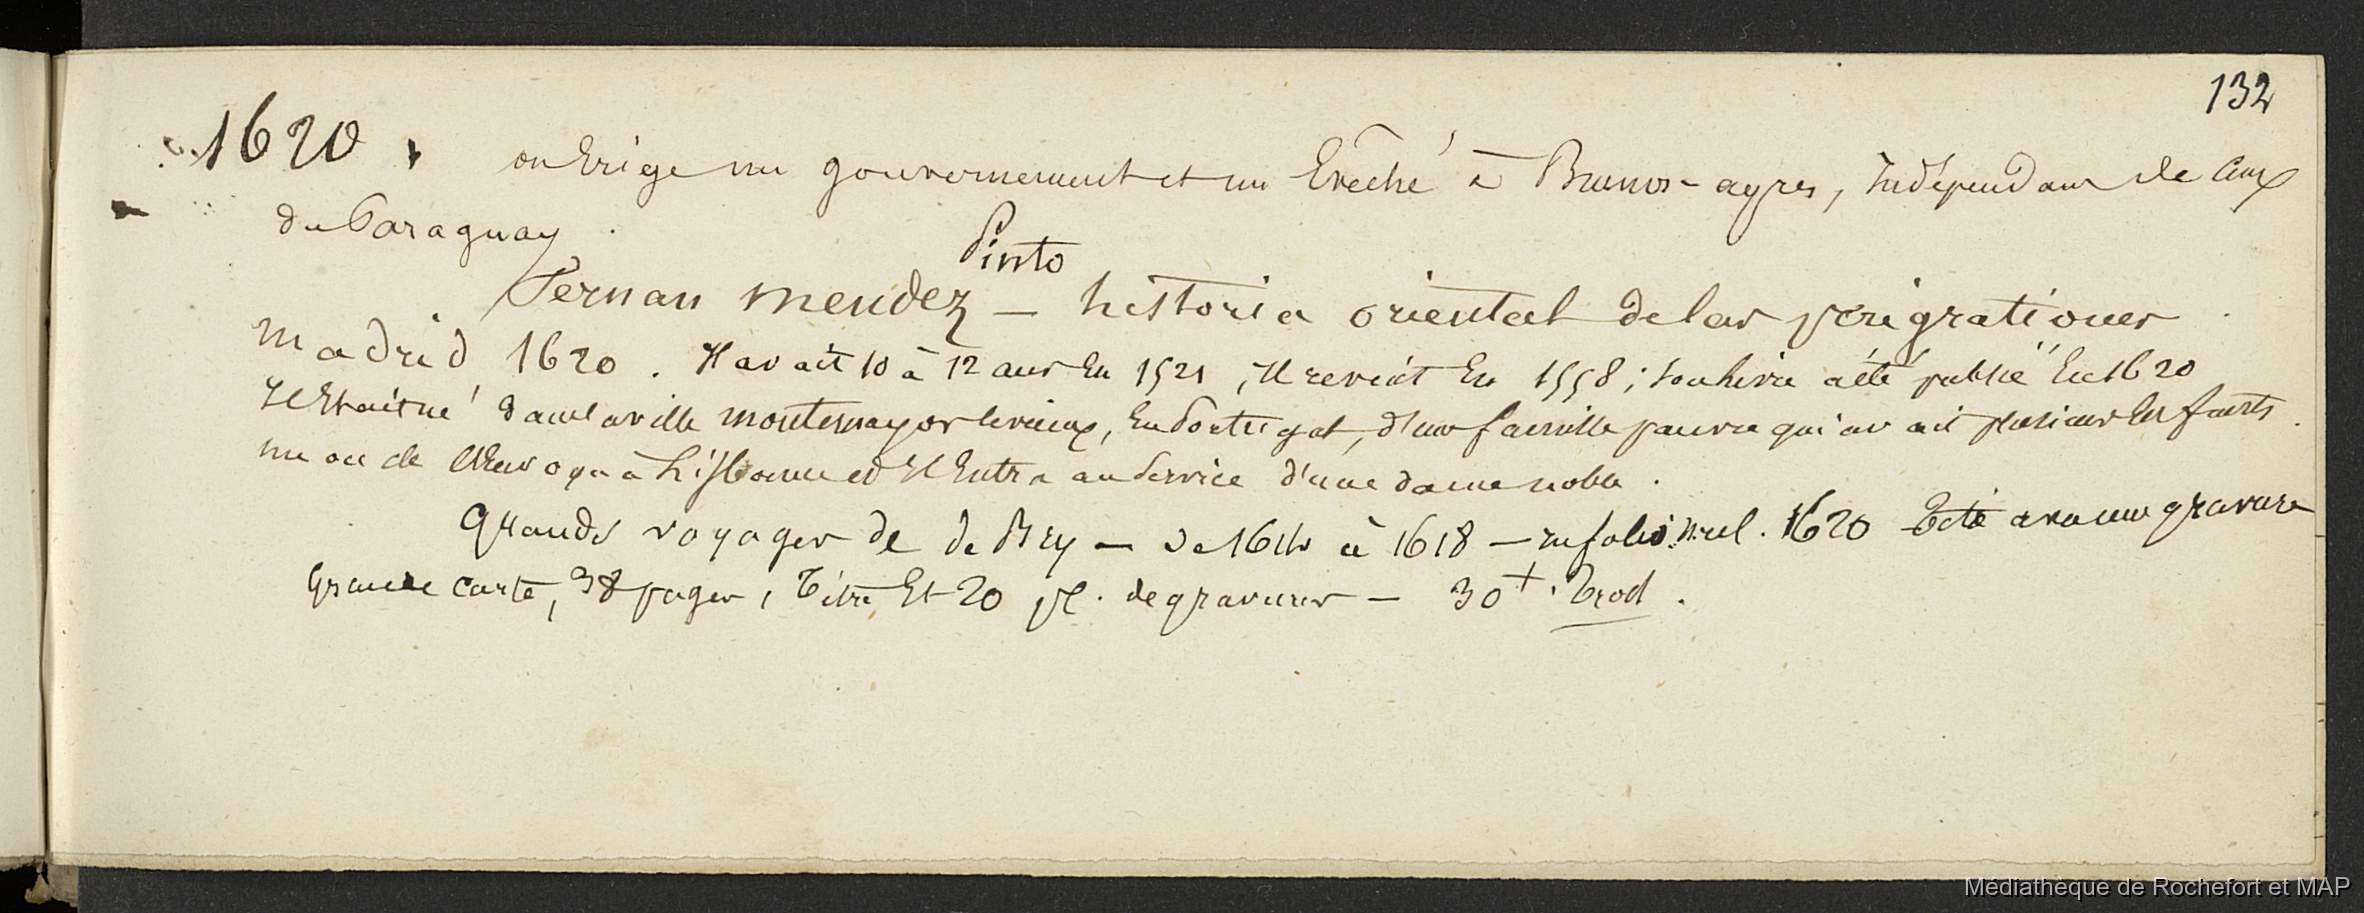 132
1620. on Erige un gouvernement et un Evêché à Buenos-ayres, Indépendans de Ceux
du Paraguay.
Pinto
Fernan Mendez — historia oriental de las perigrationes
Madrid 1620. Il avait 10 à 12 ans En 1521, Il revint En 1558; son livre a été publié En 1620
Il Etait né dans la ville montemayor le vieux, En Portugal, d'une famille pauvre qui avait plusieurs Enfants
un oncle l'Envoya à Lisbonne et Il Entra au Service d'une dame noble.
Grands voyages de de Bry — de 1614 à 1618 — in folio. 1620 avec une gravure
Grande Carte, 38 pages, Titre Et 20 pl. de gravures — 30